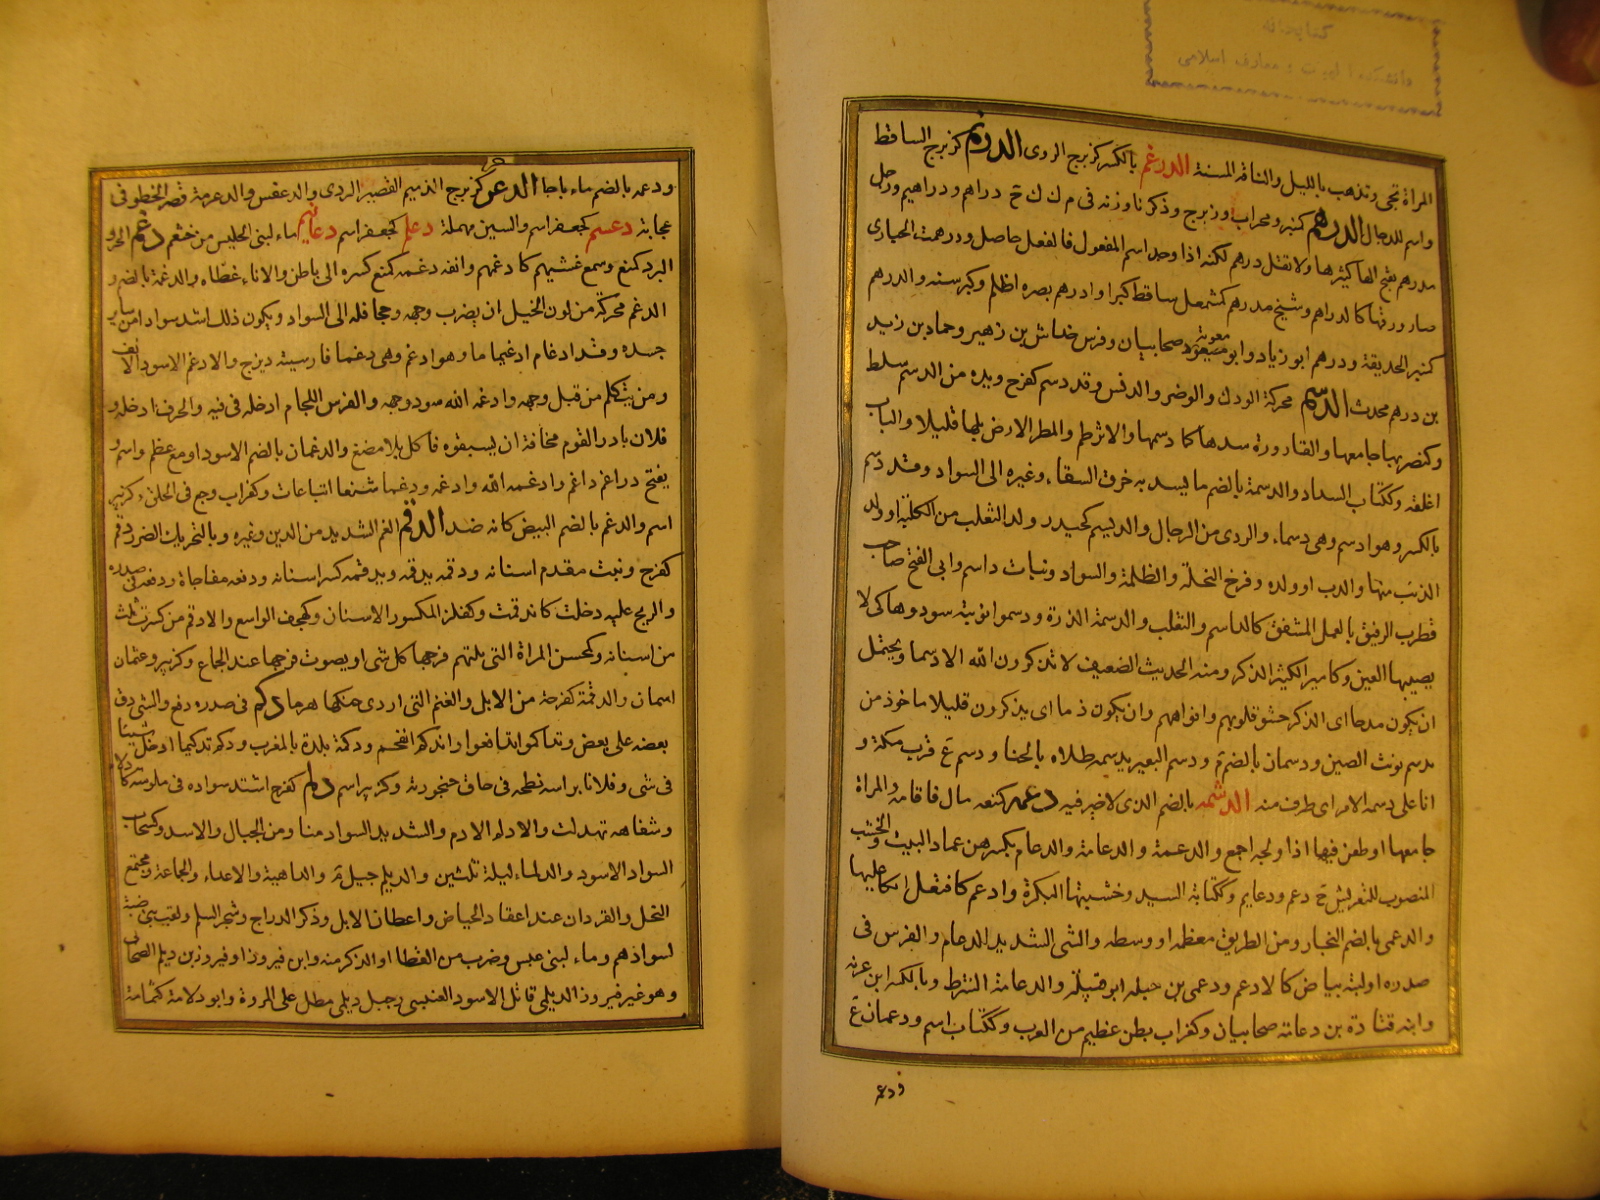 كتابخانه
دانشكده الهيات و معارف اسلامى
المراة تجى وتذهب بالليل والناقة المسنة الدرغم بالكسر كزبرج الردى الدرقم كزبرج الساقط
واسم للدجال الدرهم كمنبر ومحراب وزبرج وذكرنا وزنه فى م ك ك ج دراهم ودراهيم ورجل
مدرهم بفتح الهاء كثيرها ولا تقل درهم لكنه اذا وجد اسم المفعول فالفعل حاصل ودرهمت الخبازى
صار ورقها كالدراهم وشيخ مدرهم كمشمعل ساقط كبرا وادرهم بصره اظلم وكبر سنه والدرهم
كمنبر الحديقة ودرهم ابو زياد وابو معوية صحابيان وفرس خداش بن زهير وحماد بن زيد
بن درهم محدث الدسم محركة الودك والوضر والدنس وقد دسم كفرح ويده من الدسم سلط
وكنصر بها جامعها والقارورة سدها كادسمها والاثر طم والمطر الارض بلها قليلا والباب
اغلقه وككتاب السداد والدسمة بالضم ما يسد به خرق السقاء وغيره الى السواد وقد دسم
بالكسر وهو ادسم وهى دسماء والردى من الرجال والديسم كحيدر ولد الثعلب من الكلبة او ولد
الذئب منها والدب او ولده وفرخ النحلة والظلمة والسواد ونبات واسم وابى الفتح صاحب
قطرب الرفيق بالعمل المشفق كالداسم والثعلب والدسمة الذرة ودسموا نونته سودوها كى لا
يصيبها العين وكامير الكثير الذكر ومنه الحديث الضعيف لا تذكرون الله الا دسما ويحتمل
ان يكون مدحا اى الذكر حشو قلوبهم وافواههم وان يكون ذما اى يذكرون قليلا ماخوذ من
تدسيم نونة الصبى ودسمان بالضم ع ودسم البعير يدسمه طلاه بالهناء ودسم ع قرب مكة و
انا على دسم الامر اى طرف منه الدشمة بالضم الذى لا خير فيه دعمه كمنعه مال فاقامه والمراة
جامعها او طعن فيها اذا اولجه اجمع والدعمة والدعامة والدعام بكسرهن عماد البيت والخشب
المنصوب للتعريش ج دعم ودعايم وككتابة السيد وخشبتا البكرة وادعم كافتعل اتكا عليها
والدعمى بالضم النجار ومن الطريق معظمه او وسطه والشى الشديد الدعام والفرس فى
صدره او لبته بياض كالادعم ودعمى بن جديلة ابو قبيلة والدعامة الشرط وبالكسر ابن عزية
وابنه قتادة بن دعامة صحابيان وكغراب بطن عظيم من العرب وككتاب اسم ودعمان ع
ودعم
ودعمه بالضم ماء باجا الدعرم كزبرج الذميم القصير الردى والدعقس والدعرمة قصر الخطو فى
عجلة دعسم كجعفر اسم والسين مهملة دعلم كجعفر اسم دعانيم ماء لبنى الحليس من خثعم دغم الحر و
البرد كمنع وسمع غشيهم كادغمهم وانفه دغمه كمنع كسره الى باطن والاناء غطاه والدغمة بالضم و
الدغم محركة من لون الخيل ان يضرب وجهه وجحافله الى السواد ويكون ذلك اشد سوادا من ساير
جسده وقد ادغام ادغيماما وهو ادغم وهى دغماء فارسيته ديزج والادغم الاسود الانف
ومن يتكلم من قبل وجهه وادغمه الله سود وجهه والفرس اللجام ادخله فى فيه والحرف ادخله و
فلان بادر القوم مخافة ان يسبقوه فاكل بلا مضغ والدغمان بالضم الاسود او مع عظم واسم و
يفتح وراغم داغم وادغمه الله وادغمه ودغما شنغما اتباعات وكغراب وجع فى الحلق وكزبير
اسم والدغم بالضم البيض كانه ضد الدقم الغم الشديد من الدين وغيره وبالتحريك الضزز دقم
كفرح وذهب مقدم اسنانه ودقمه يدقمه ويدقمه كسر اسنانه ودفعه مفاجاة ودفعه فى صدره
والريح عليه دخلت كاندقمت وكفلز المكسور الاسنان وكهجف الواسع والادقم من كسرت ثلث
من اسنانه وكمحسن المراة التى يلتهم فرجها كل شى او يصوت فرجها عند الجماع وكزبير وعثمان
اسمان والدقمة كفرحة من الابل والغنم التى اودى حنكها هرما دكم فى صدره دفع والشى دق
بعضه على بعض وتداكموا تدافعوا واندكم انقحم ودكمة بلدة بالمغرب ودكم تدكيما ادخل شيئا
فى شى وفلانا براسه نطحه فى حاق حنجورته وكزبير اسم دلم كفرح اشتد سواده فى ملوسة كادلام
وشفاهه تهدلت والادلم الادم والشديد السواد منا ومن الجبال والاسد وكسحاب
السواد الاسود والدلماء ليلة ثلثين والديلم جيل م والداهية والاعداء والجماعة ومجتمع
النمل والقردان عند اعقار الحياض واعطان الابل وذكر الدراج وشجر السلم ولقب بنى ضبة
لسوادهم وماء لبنى عبس وضرب من القطا او الذكر منه وابن فيروز او فيروز بن ديلم الصحابى
وهو غير فيروز الديلمى قاتل الاسود العنسى وجبل ديلمى مطل على المروة وابو دلامة كثمامة